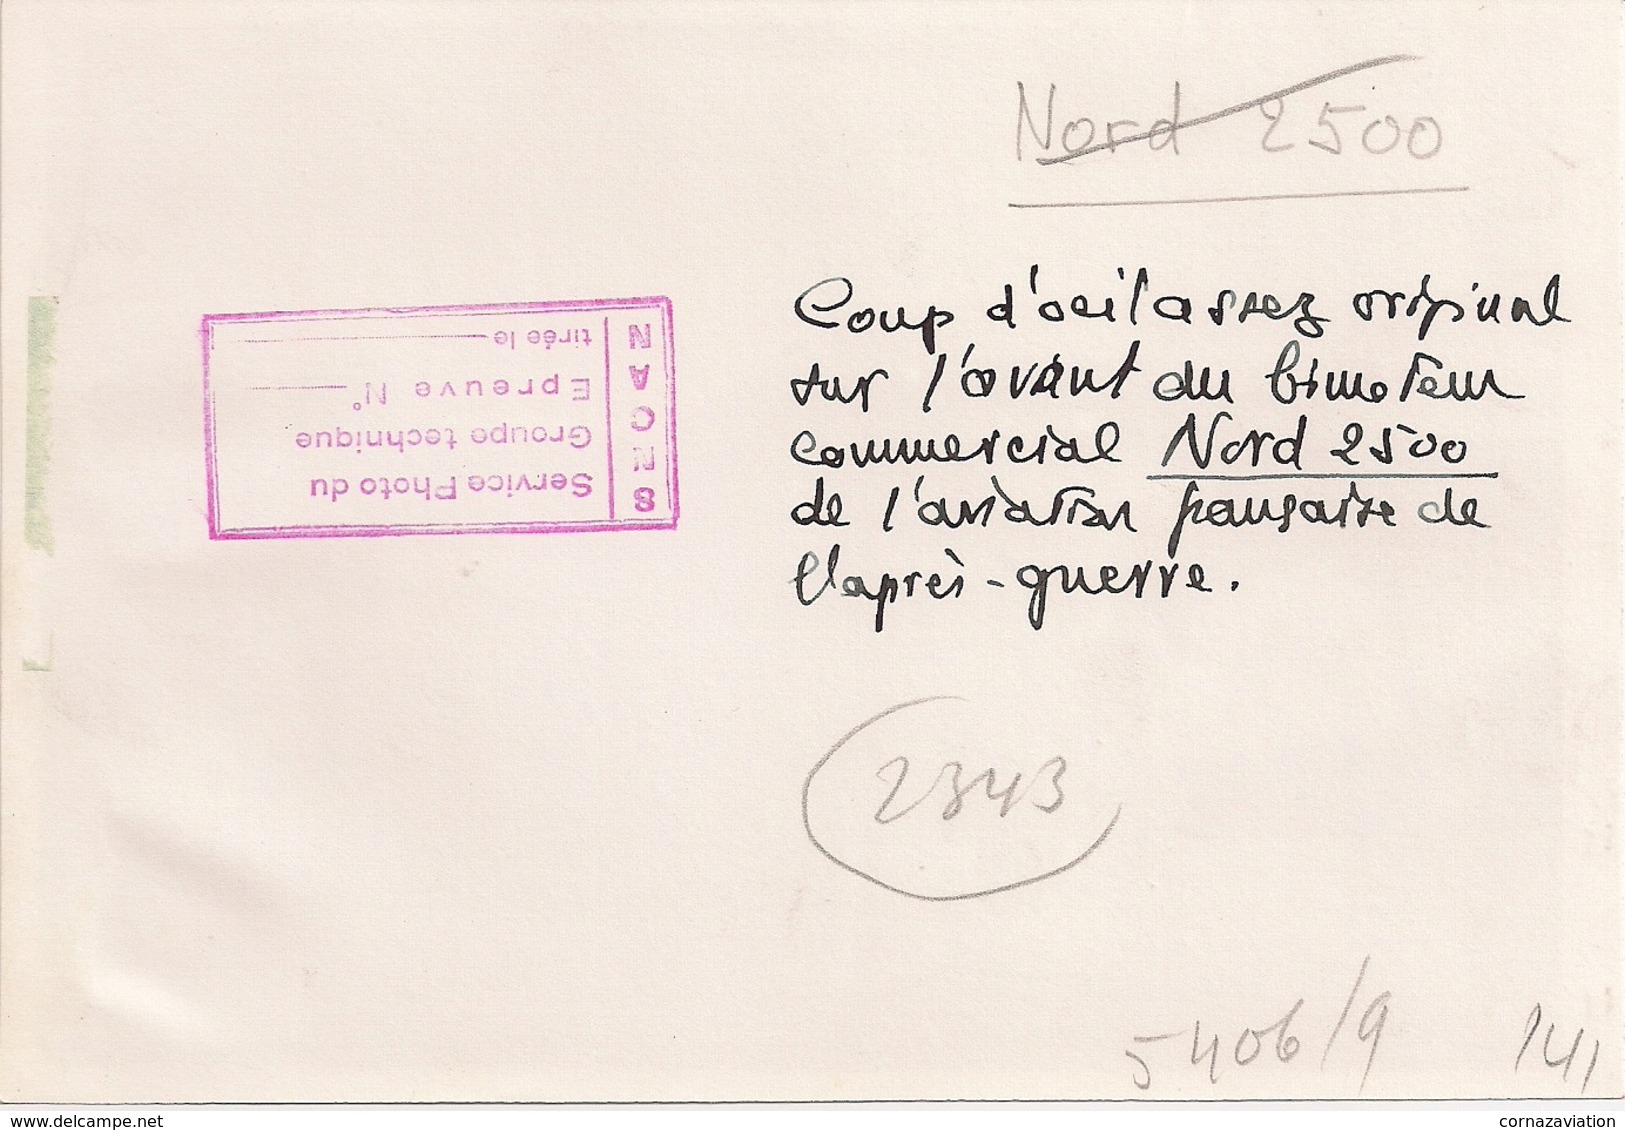 Nord 2500
Coup d'oeil assez original
sur l'avant du bimoteur
commercial Nord 2500
de l'aviation française de
l'après-guerre.
SNCAN
Service Photo du
Groupe technique
Epreuve N°
tirée le
2343
5406/9
141
delcampe.net
cornazaviation